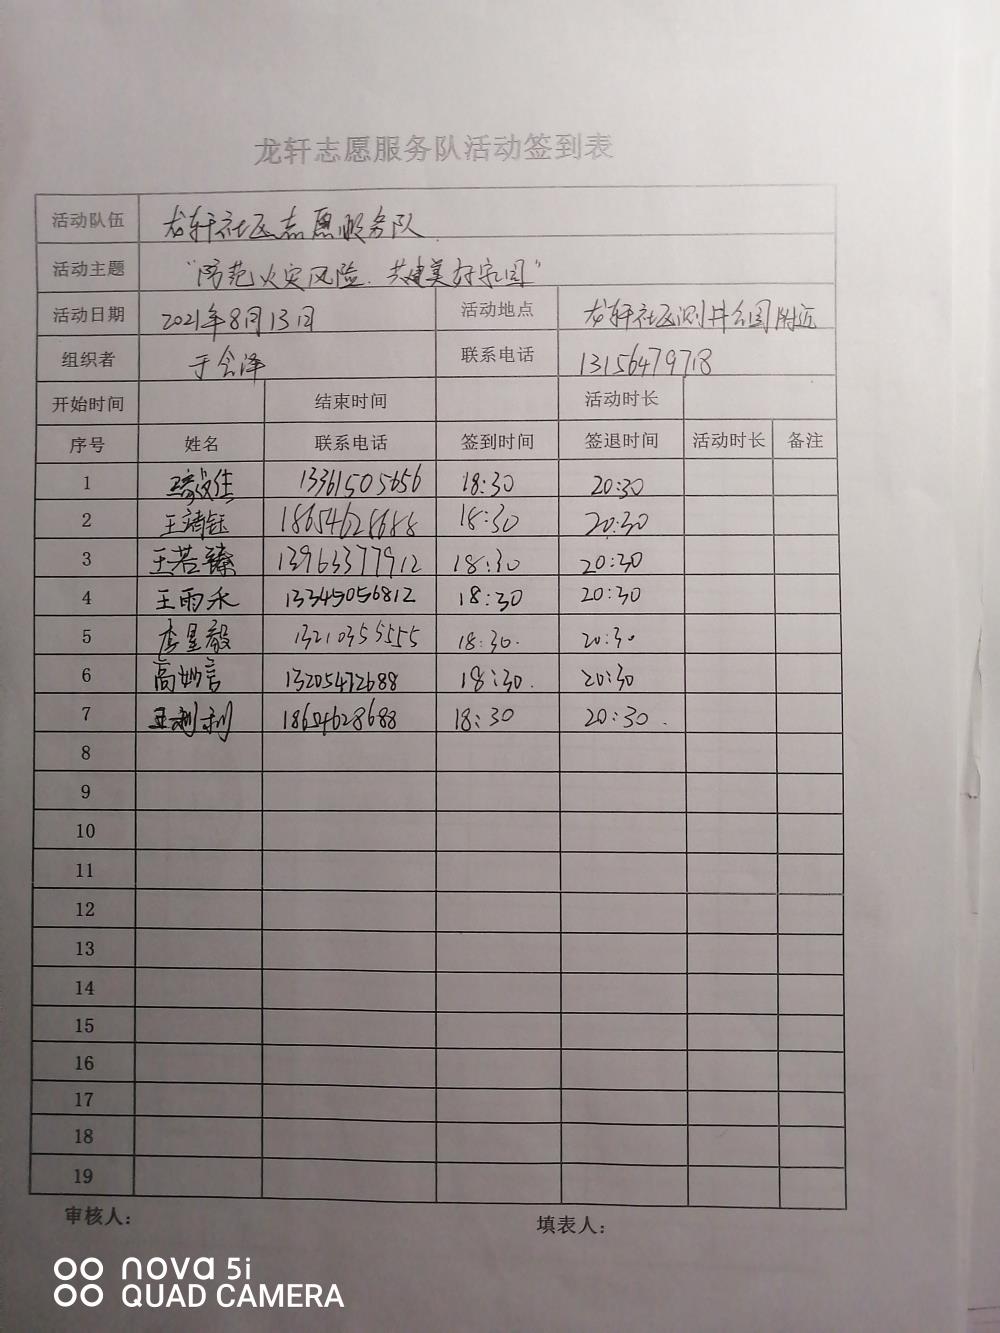 龙轩志愿服务队活动签到表
活动队伍 龙轩社区志愿服务队
活动主题 "防范火灾风险.共建美好家园"
活动日期 2021年8月13日 活动地点 龙轩社区测井公园附近
组织者 于会泽 联系电话 13156479718
开始时间 结束时间 活动时长
序号 姓名 联系电话 签到时间 签退时间 活动时长 备注
1 13361505656 18:30 20:30
2 王靖钰 18654628688 18:30 20:30
3 王若臻 13963377912 18:30 20:30
4 王雨禾 13345056812 18:30 20:30
5 李星毅 13210355555 18:30. 20:30
6 高妙言 13205472688 18:30. 20:30
7 王利利 18654628688 18:30 20:30.
8
9
10
11
12
13
14
15
16
17
18
19
审核人: 填表人:
nova 5i
QUAD CAMERA